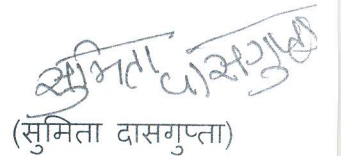 सुमिता दासगुप्ता
(सुमिता दासगुप्ता)